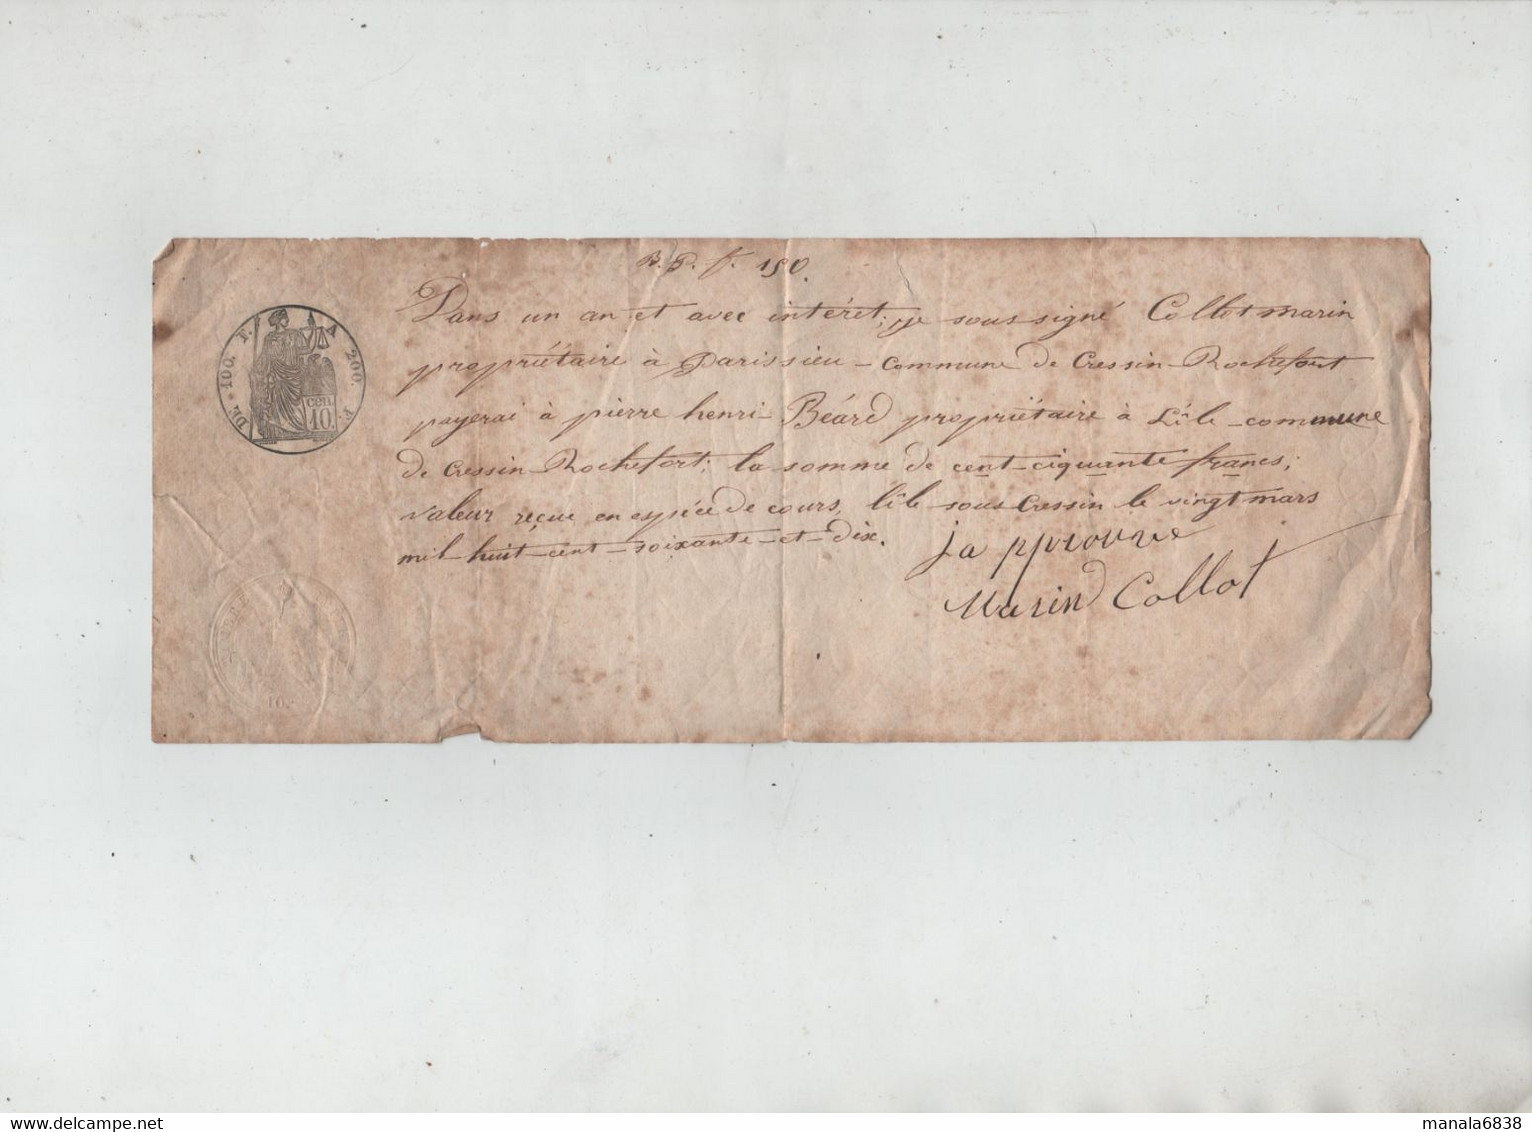 B. P. f. 150.
Dans un an et avec intérêt; je sous signé Collot marin
propriétaire à Parissieu - commune de Cressin-Rochefort
payerai à pierre henri Béard propriétaire à L'île - commune
de Cressin-Rochefort; la somme de cent-ciquante francs;
valeur reçue en espéce de cours, l'île sous Cressin le vingt mars
mil huit-cent-soixante-et-dix.
Ja pprouve
Marin Collot
DE 100. F. A 200. F.
cen
10.
10.
manala6838